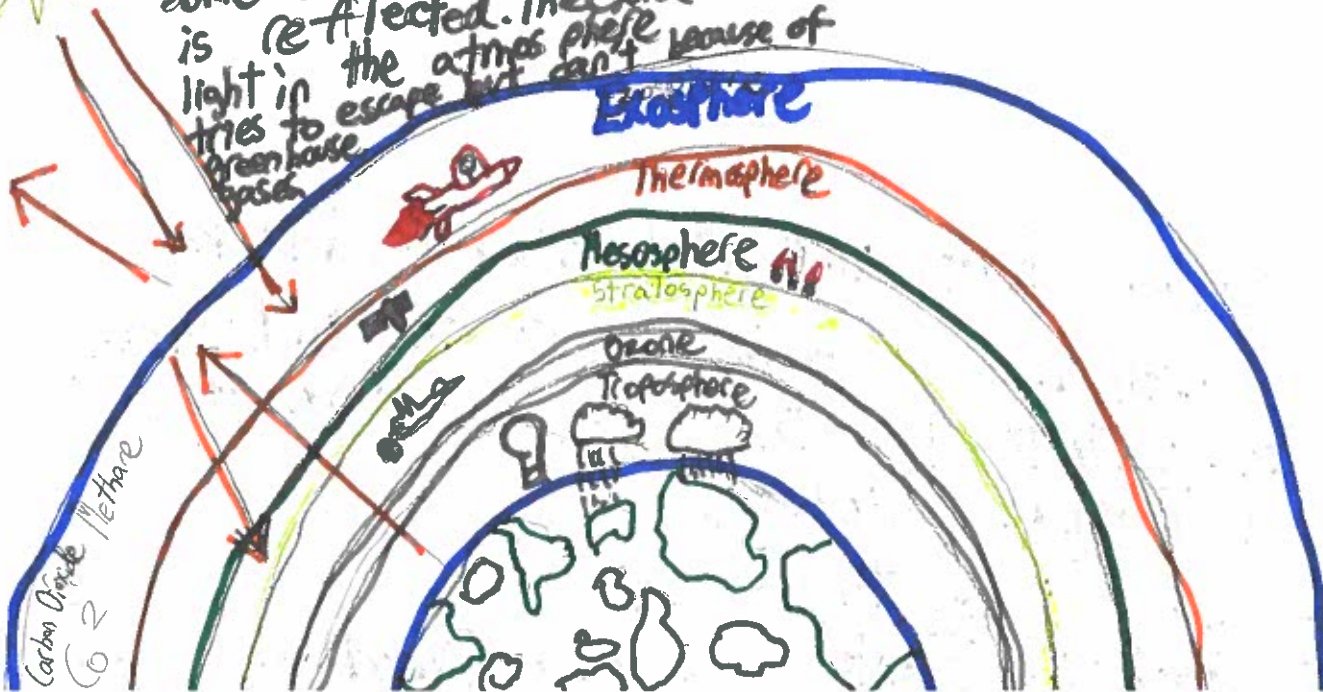 some
is reflected. The
light in the atmosphere
tries to escape but can't because of
greenhouse
gases
Exosphere
Thermosphere
Mesosphere
Stratosphere
Ozone
Troposphere
Carbon Dioxide Methane
CO2